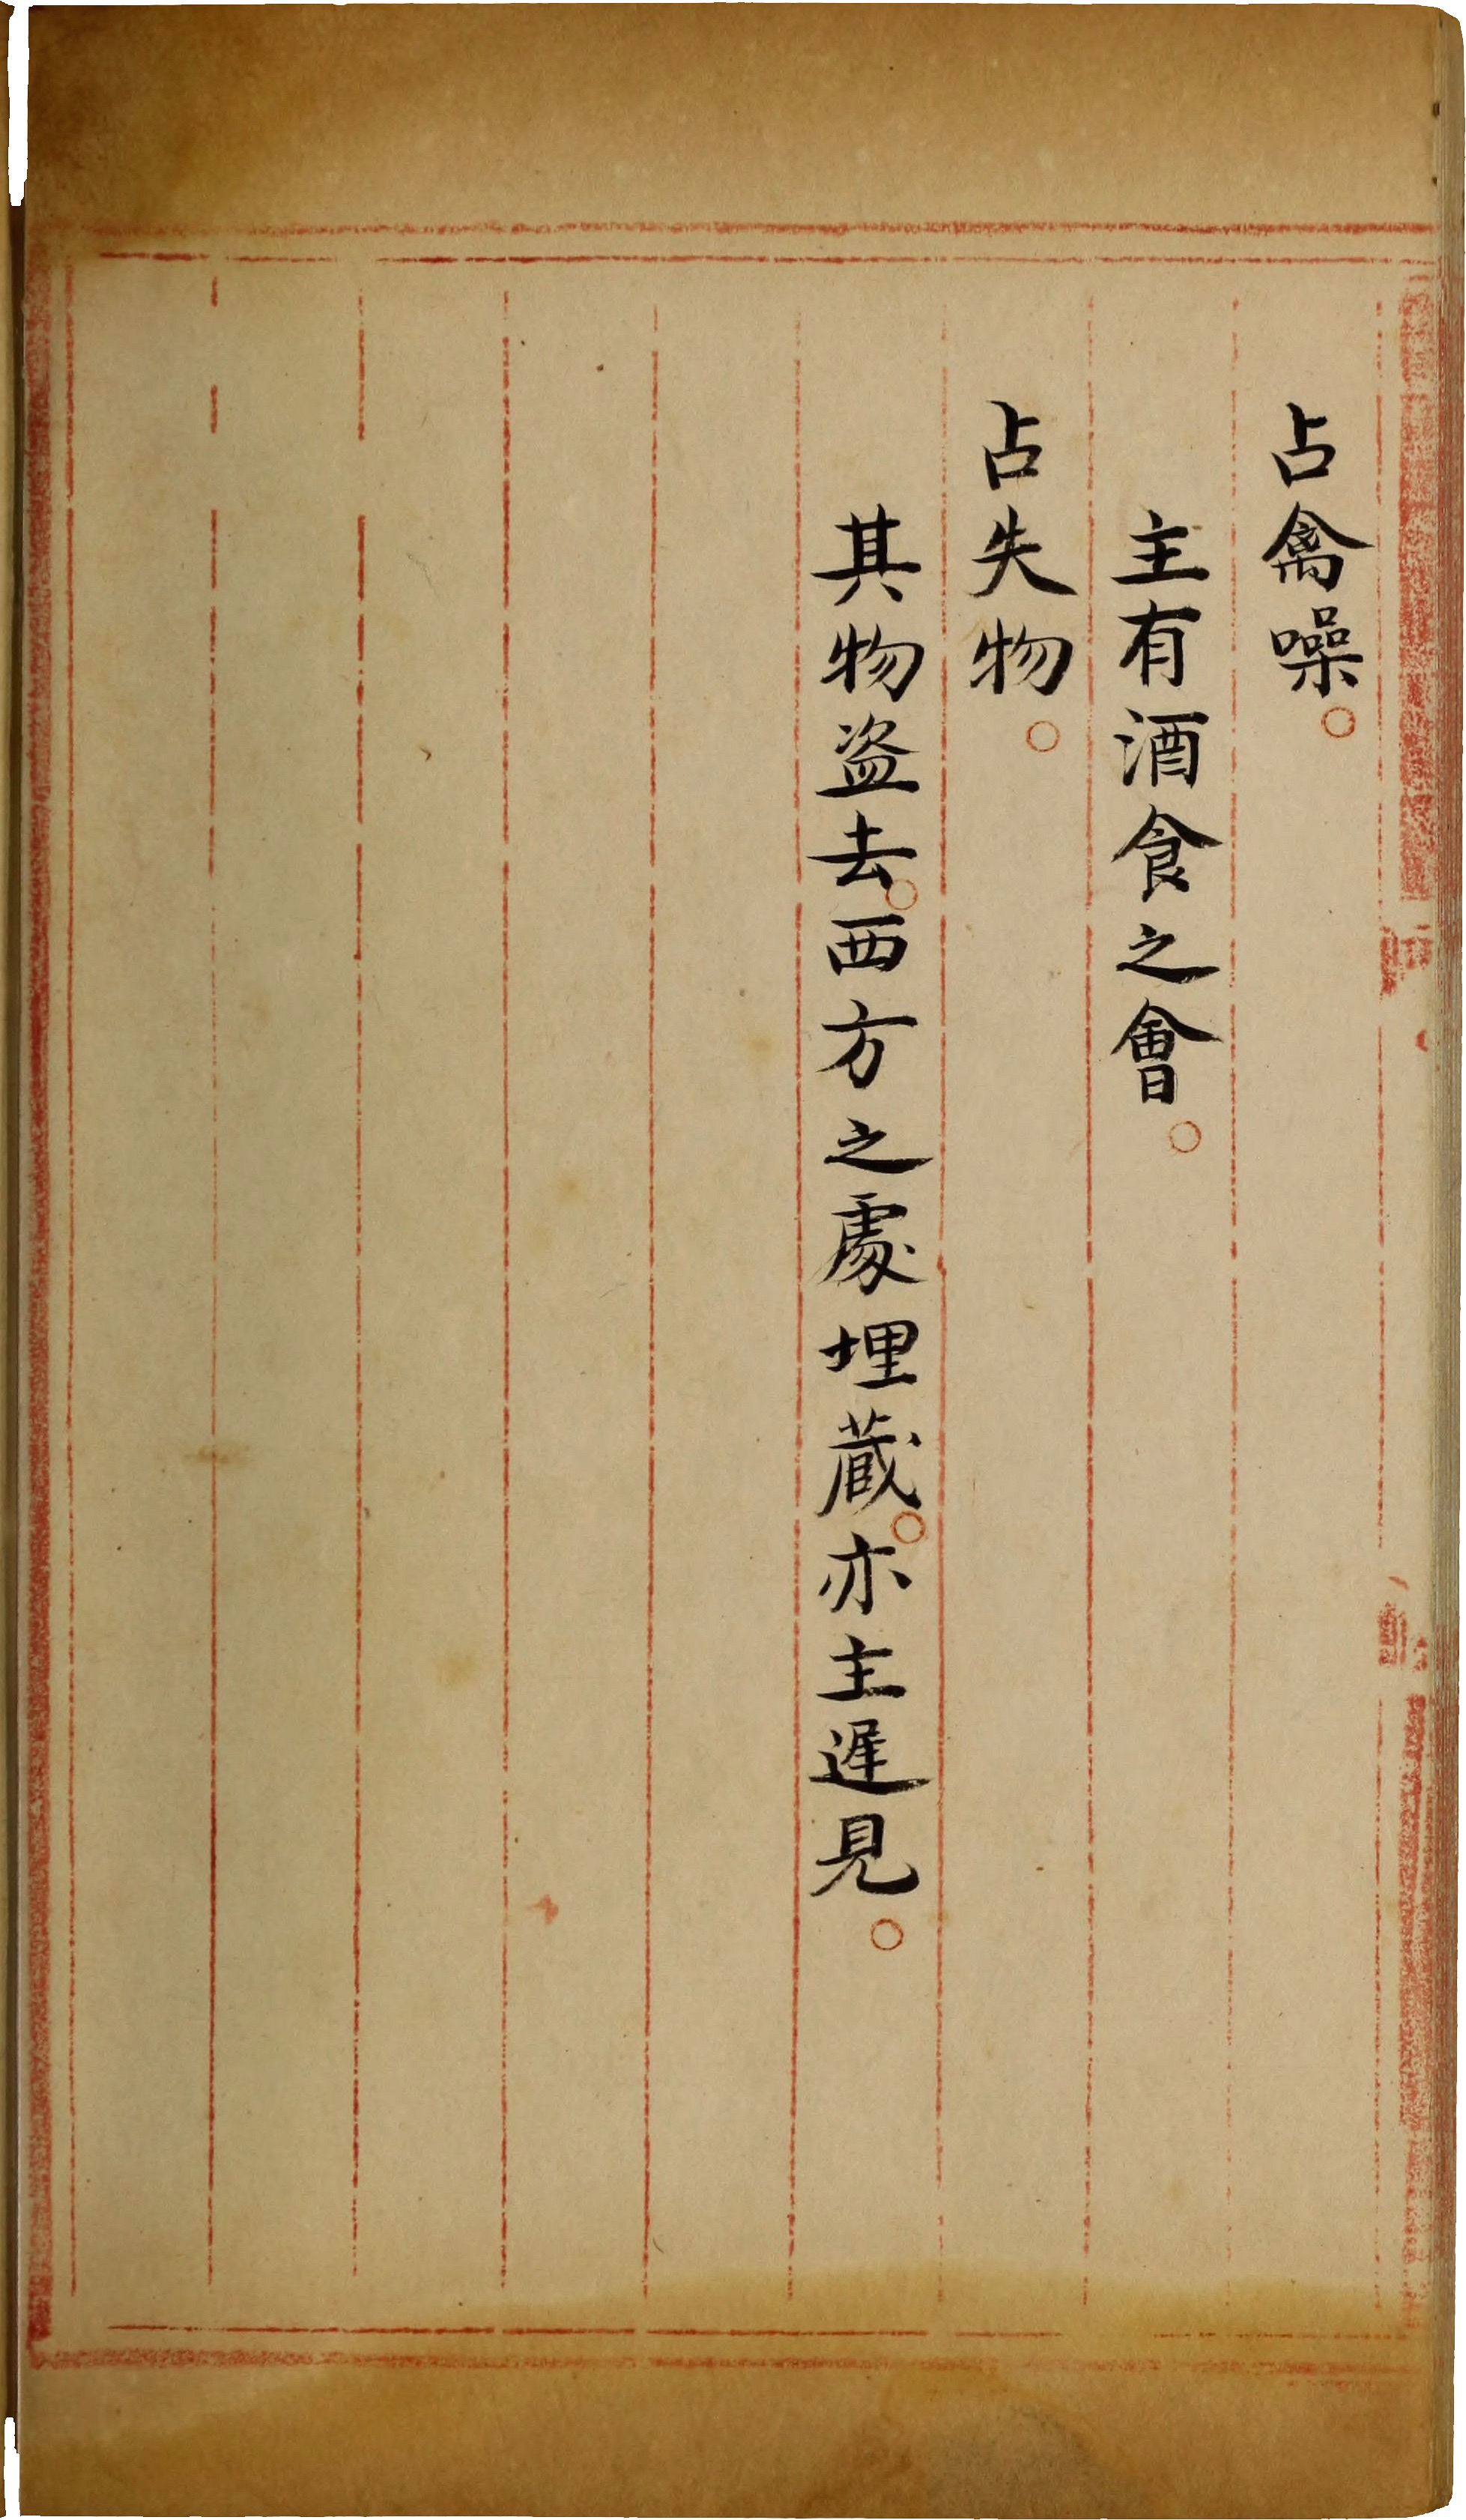 占禽噪。
主有酒食之會。
占失物。
其物盗去。西方之處埋蔵。亦主遲見。